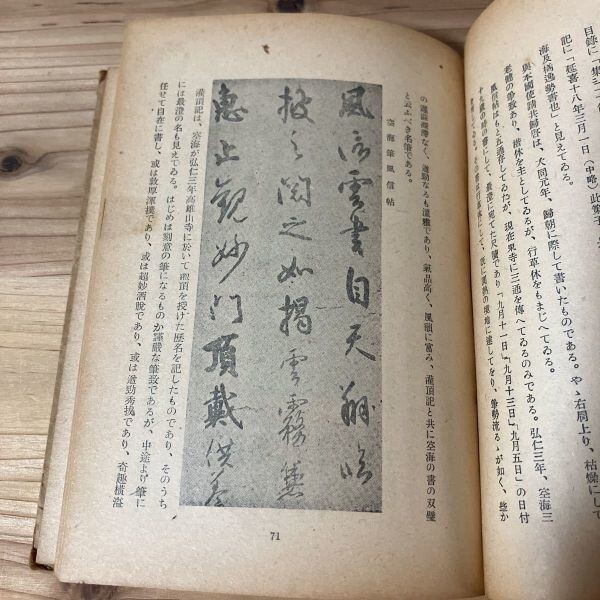 目錄に「集
記に「延喜十八年三月一日（中略）此第五
海及橘逸勢書也」と見えてゐる。
與本國使請共歸啓は、大同元年、歸朝に際して書いたものである。やゝ右肩上り、枯燥にして
老健の筆致あり、楷体を主としてゐるが、行草体をもまじへてゐる。
風信帖はもと五通存してゐたが、現在東寺に三通を傳へてゐるのみである。弘仁三年、空海三
十九歳の時の書にして、最澄に宛てた尺牘であり「九月十一日」「九月十三日」「九月五日」の日付
書は行草体にして、既に圓熟の境地に達してをり、筆勢流るゝが如く、些か
の澁滯なく、遒勁なるも溫雅であり、氣品高く、風韻に富み、灌頂記と共に空海の書の双璧
と云ふべき名筆である。
空海筆風信帖
風信雲書自天翔臨
披之閲之如揭雲霧兼
惠止觀妙門頂戴供養
灌頂記は、空海が弘仁三年高雄山寺に於いて灌頂を授けた歴名を記したものであり、そのうち
には最澄の名も見えてゐる。はじめは刻意の筆になるものか謹嚴な筆致であるが、中途より筆に
任せて自在に書し、或は敦厚渾樸であり、或は超妙洒脫であり、或は遒勁秀拔であり、奇趣橫溢
71